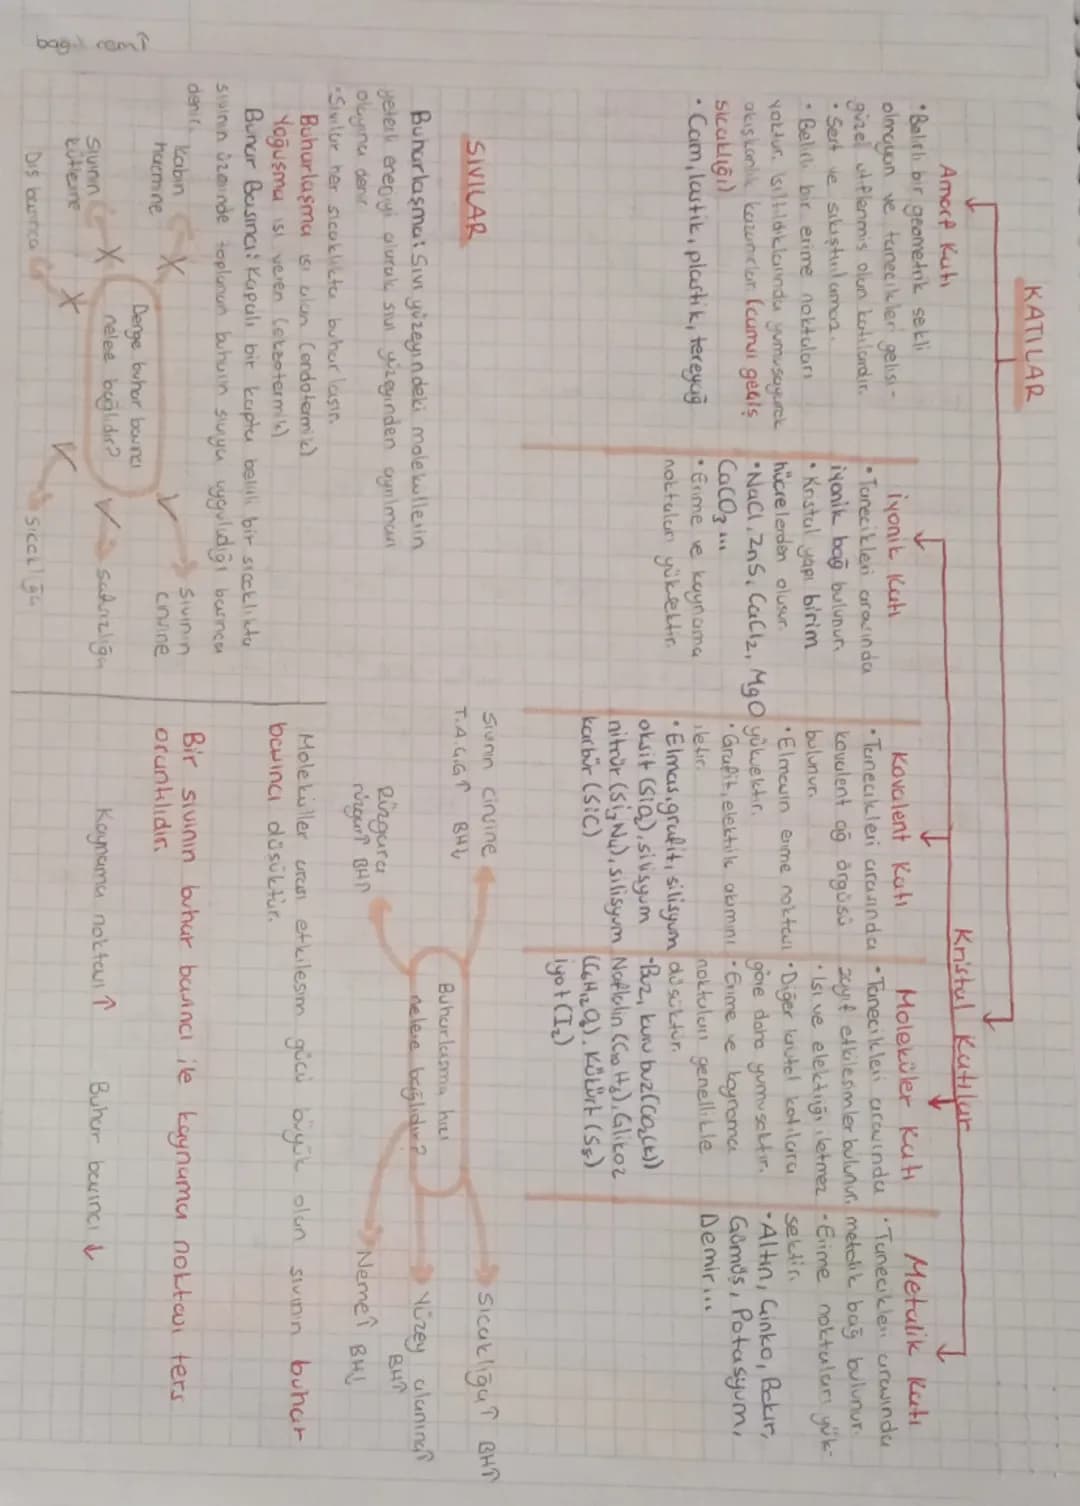 KATILAR
Amorf Katı
• Belirli bir geometrik şekli
olmayan ve tanecikleri gelişi-
güzel istiflenmiş olan katılardır.
• Sert ve sıkıştırılamaz.
• Belirli bir erime noktaları
yoktur, ısıtıldıklarında yumuşayarak
akışkanlık kazanırlar (camsı geçiş
sıcaklığı)
• Cam, lastik, plastik, tereyağ
Kristal Katılar
İyonik Katı
• Tanecikleri arasında
iyonik bağ bulunur.
• Kristal yapı birim
hücrelerden oluşur.
• NaCl, ZnS, CaCl₂, MgO
CaCO₃ ...
• Erime ve kaynama
noktaları yüksektir.
Kovalent Katı
• Tanecikleri arasında
kovalent ağ örgüsü
bulunur.
• Elmasın erime noktası
yüksektir.
• Grafit, elektrik akımını
iletir.
• Elmas, grafit, silisyum
oksit (SiO₂), silisyum
nitrür (Si₃N₄), silisyum
karbür (SiC)
Moleküler Katı
• Tanecikleri arasında
zayıf etkileşimler bulunur.
• Isı ve elektriği iletmez
• Diğer kristal katılara
göre daha yumuşaktır.
• Erime ve kaynama
noktaları genellikle
düşüktür.
• Buz, kuru buz (CO₂(k))
Naftalin (C₁₀H₈), Glikoz
(C₆H₁₂O₆), Kükürt (S₈)
iyot (I₂)
Metalik Katı
• Tanecikleri arasında
metalik bağ bulunur.
• Erime noktaları yük-
sektir.
• Altın, Çinko, Bakır,
Gümüş, Potasyum,
Demir...
SIVILAR
Buharlaşma: Sıvı yüzeyindeki moleküllerin
yeterli enerjiyi alarak sıvı yüzeyinden ayrılması
olayına denir.
• Sıvılar her sıcaklıkta buharlaşır.
Buharlaşma ısı alan (endotermik)
Yoğuşma ısı veren (ekzotermik)
Buhar Basıncı: Kapalı bir kapta belirli bir sıcaklıkta
sıvının üzerinde toplanan buharın sıvıya uyguladığı basınca
denir.
Kabın
hacmine
X
Sıvının
kütlesine
X
Dış basınca
X
Denge buhar basıncı
nelere bağlıdır?
✓
Sıvının
cinsine
✓
saflığa
✓
sıcaklığa
Buharlaşma hızı
nelere bağlıdır?
Sıvının cinsine
T.A.Ç.G↑ BH↓
Rüzgara
rüzgar↑ BH↑
Sıcaklığa↑ BH↑
Yüzey alanına↑
BH↑
Neme↑ BH↓
Moleküller arası etkileşim gücü büyük olan sıvının buhar
basıncı düşüktür.
Bir sıvının buhar basıncı ile kaynama noktası ters
orantılıdır.
Kaynama noktası ↑ Buhar basıncı ↓